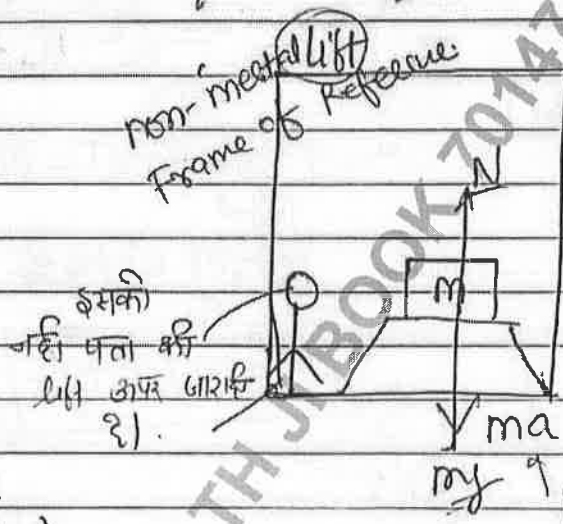 lift
non-inertial
Frame of Reference.
N
m
इसको
नही पता की
lift ऊपर जा रही
है।.
ma
mg
TH JI BOOK 70147